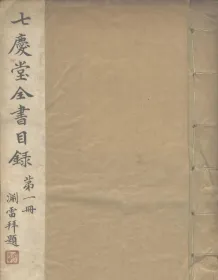 七慶堂全書目錄
第一冊
淵雷拜題